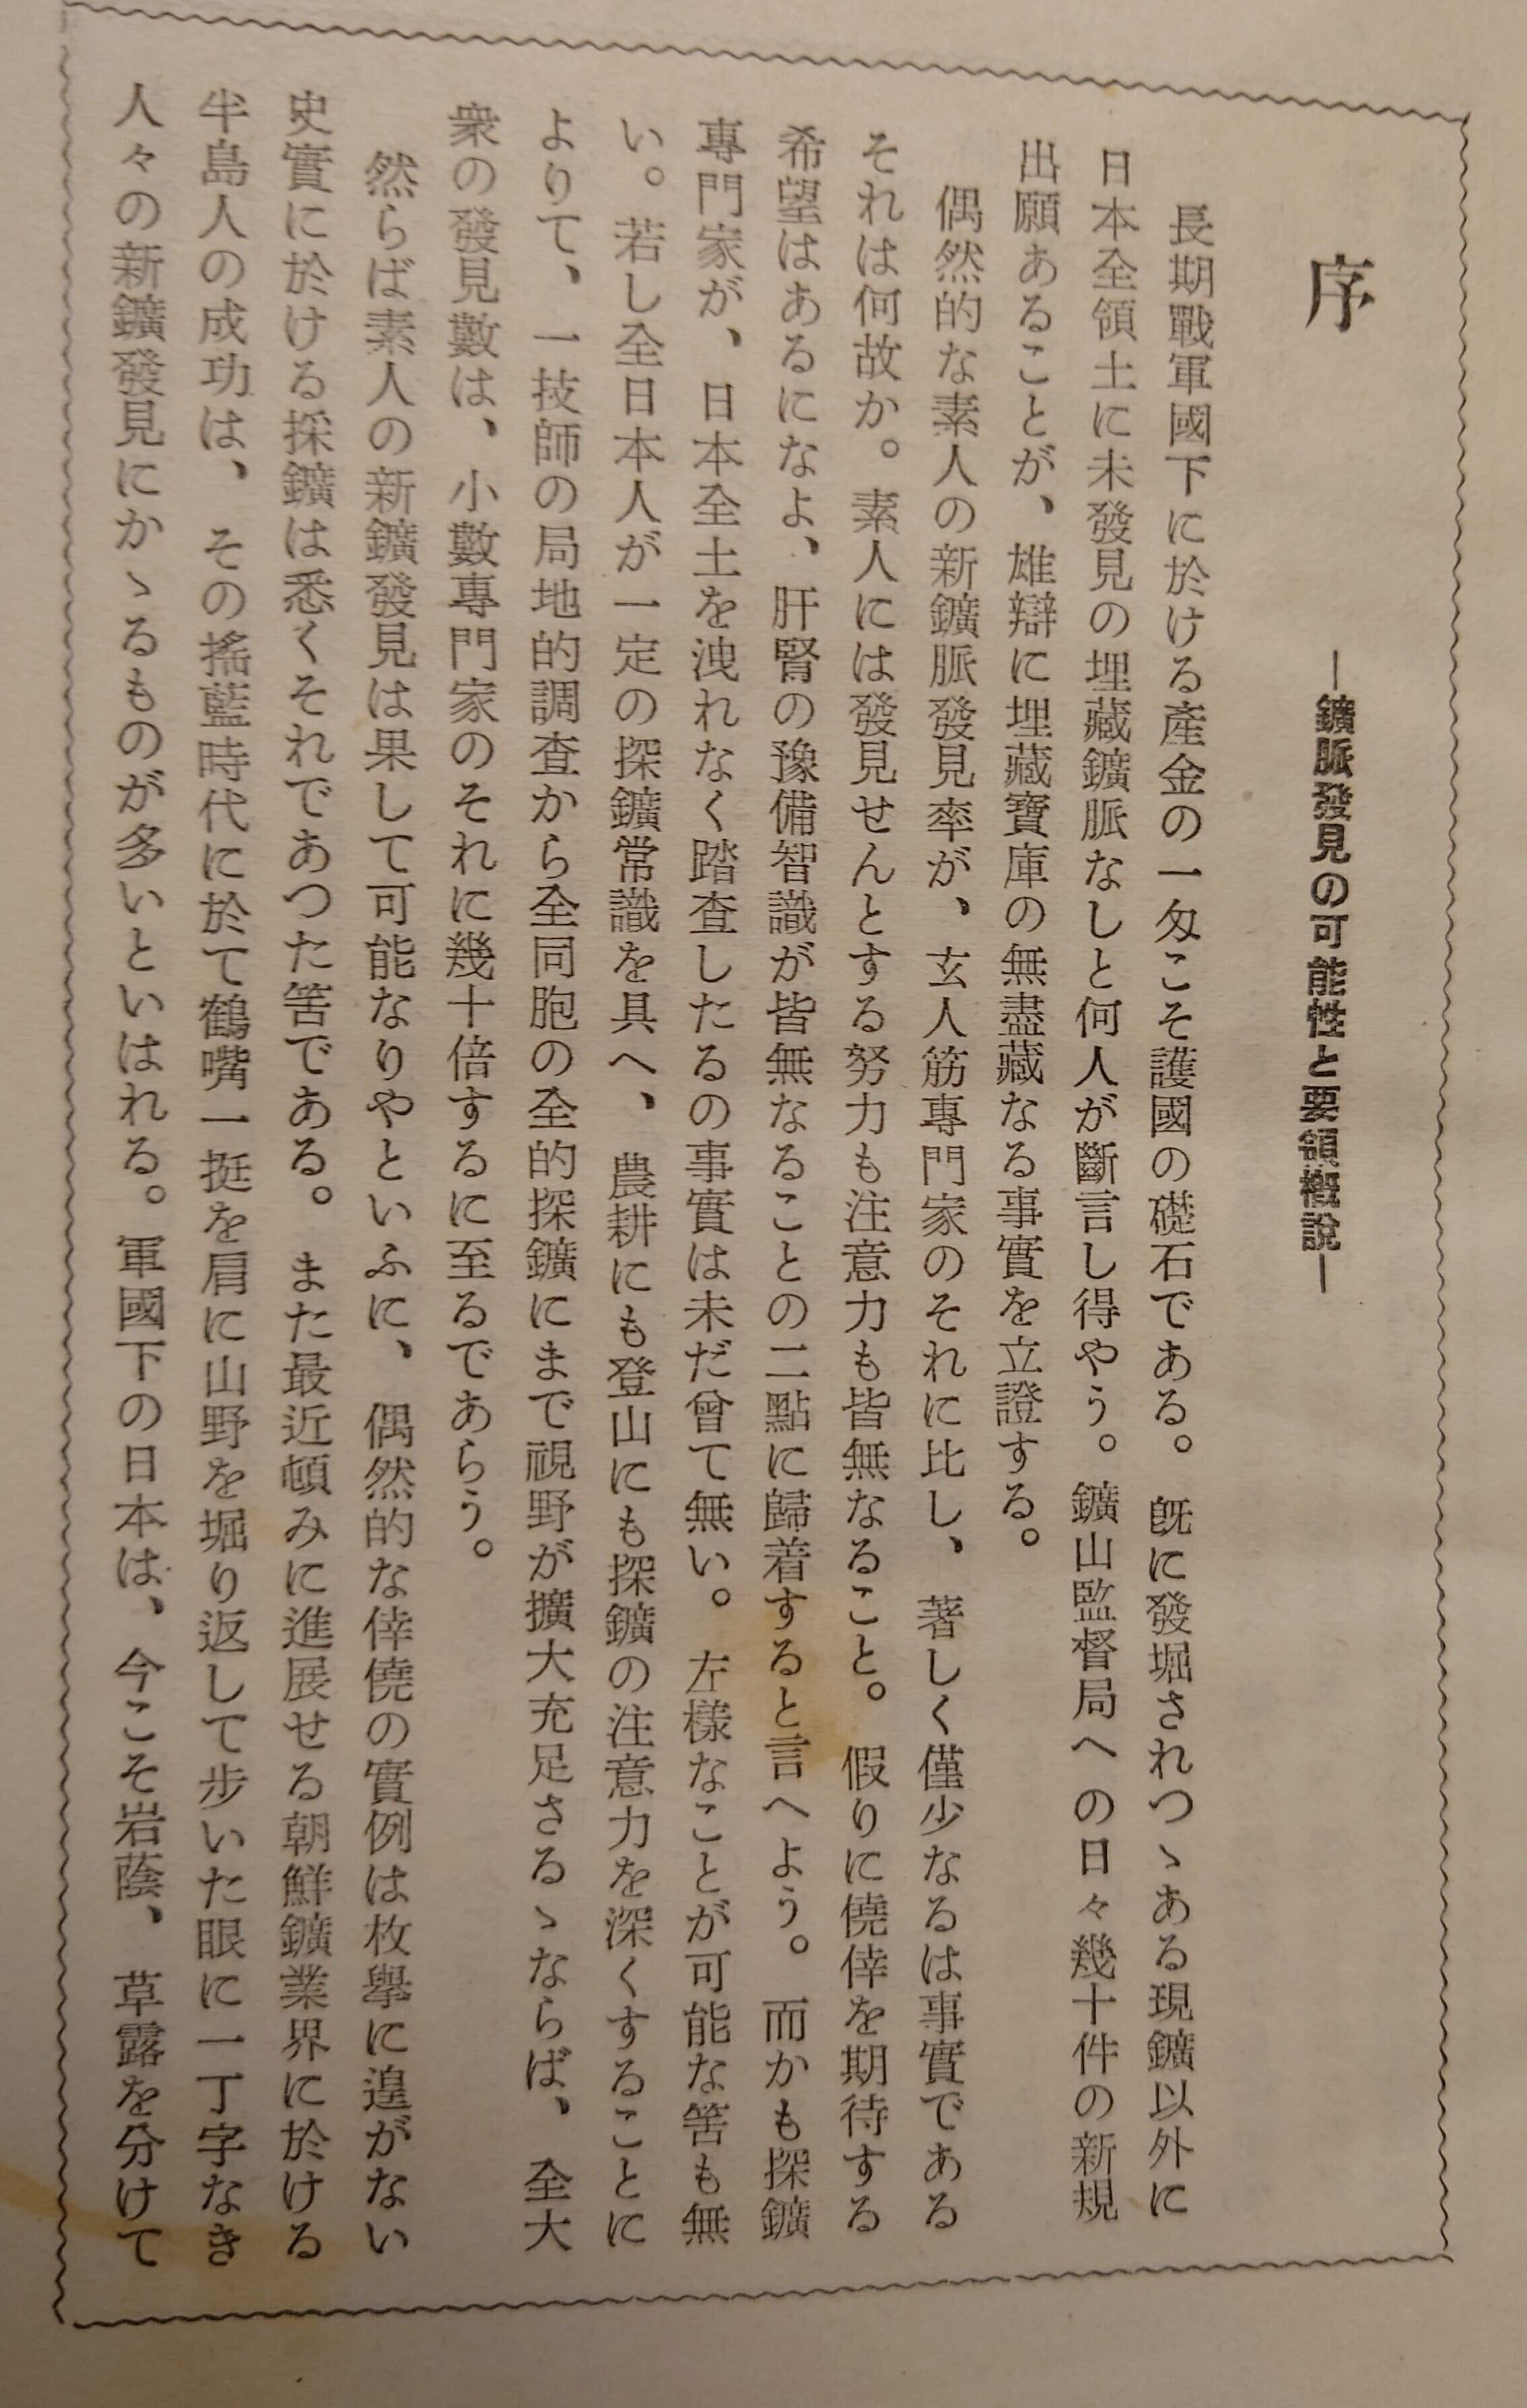 序
―鑛脈發見の可能性と要領概說―
長期戰軍國下に於ける產金の一匁こそ護國の礎石である。既に發堀されつゝある現鑛以外に
日本全領土に未發見の埋藏鑛脈なしと何人が斷言し得やう。鑛山監督局への日々幾十件の新規
出願あることが、雄辯に埋藏寶庫の無盡藏なる事實を立證する。
偶然的な素人の新鑛脈發見率が、玄人筋專門家のそれに比し、著しく僅少なるは事實である
それは何故か。素人には發見せんとする努力も注意力も皆無なること。假りに僥倖を期待する
希望はあるになよ、肝腎の豫備智識が皆無なることの二點に歸着すると言へよう。而かも探鑛
專門家が、日本全土を洩れなく踏査したるの事實は未だ曾て無い。左樣なことが可能な筈も無
い。若し全日本人が一定の探鑛常識を具へ、農耕にも登山にも探鑛の注意力を深くすることに
よりて、一技師の局地的調査から全同胞の全的探鑛にまで視野が擴大充足さるゝならば、全大
衆の發見數は、小數專門家のそれに幾十倍するに至るであらう。
然らば素人の新鑛發見は果して可能なりやといふに、偶然的な倖僥の實例は枚擧に遑がない
史實に於ける採鑛は悉くそれであつた筈である。また最近頓みに進展せる朝鮮鑛業界に於ける
半島人の成功は、その搖藍時代に於て鶴嘴一挺を肩に山野を堀り返して步いた眼に一丁字なき
人々の新鑛發見にかゝるものが多いといはれる。軍國下の日本は、今こそ岩蔭、草露を分けて